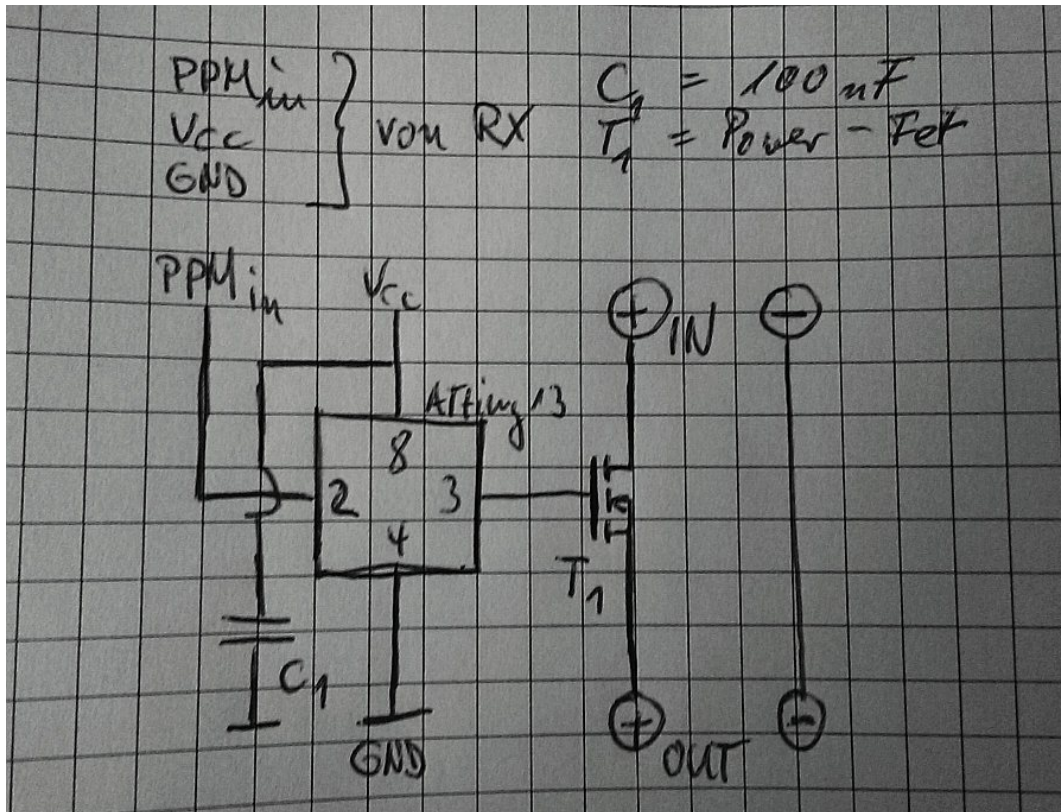 PPMin
Vcc
GND
von RX
C1 = 100nF
T1 = Power-Fet
PPMin
Vcc
+ IN -
ATtiny13
8
2
3
4
T1
C1
GND
+ OUT -